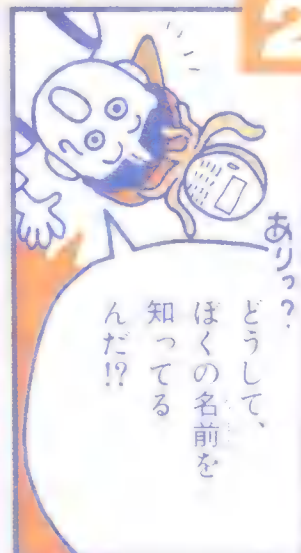 2
ありっ?
どうして、
ぼくの名前を
知ってる
んだ!?